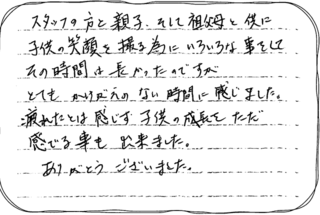 スタッフの方と親子、そして祖父母と供に
子供の笑顔を撮る為にいろいろな事をして
その時間は長かったのですが
とても かけがえのない時間に感じました。
疲れたとは感じず 子供の成長を ただ
感じる事も 出来ました。
ありがとう ございました。